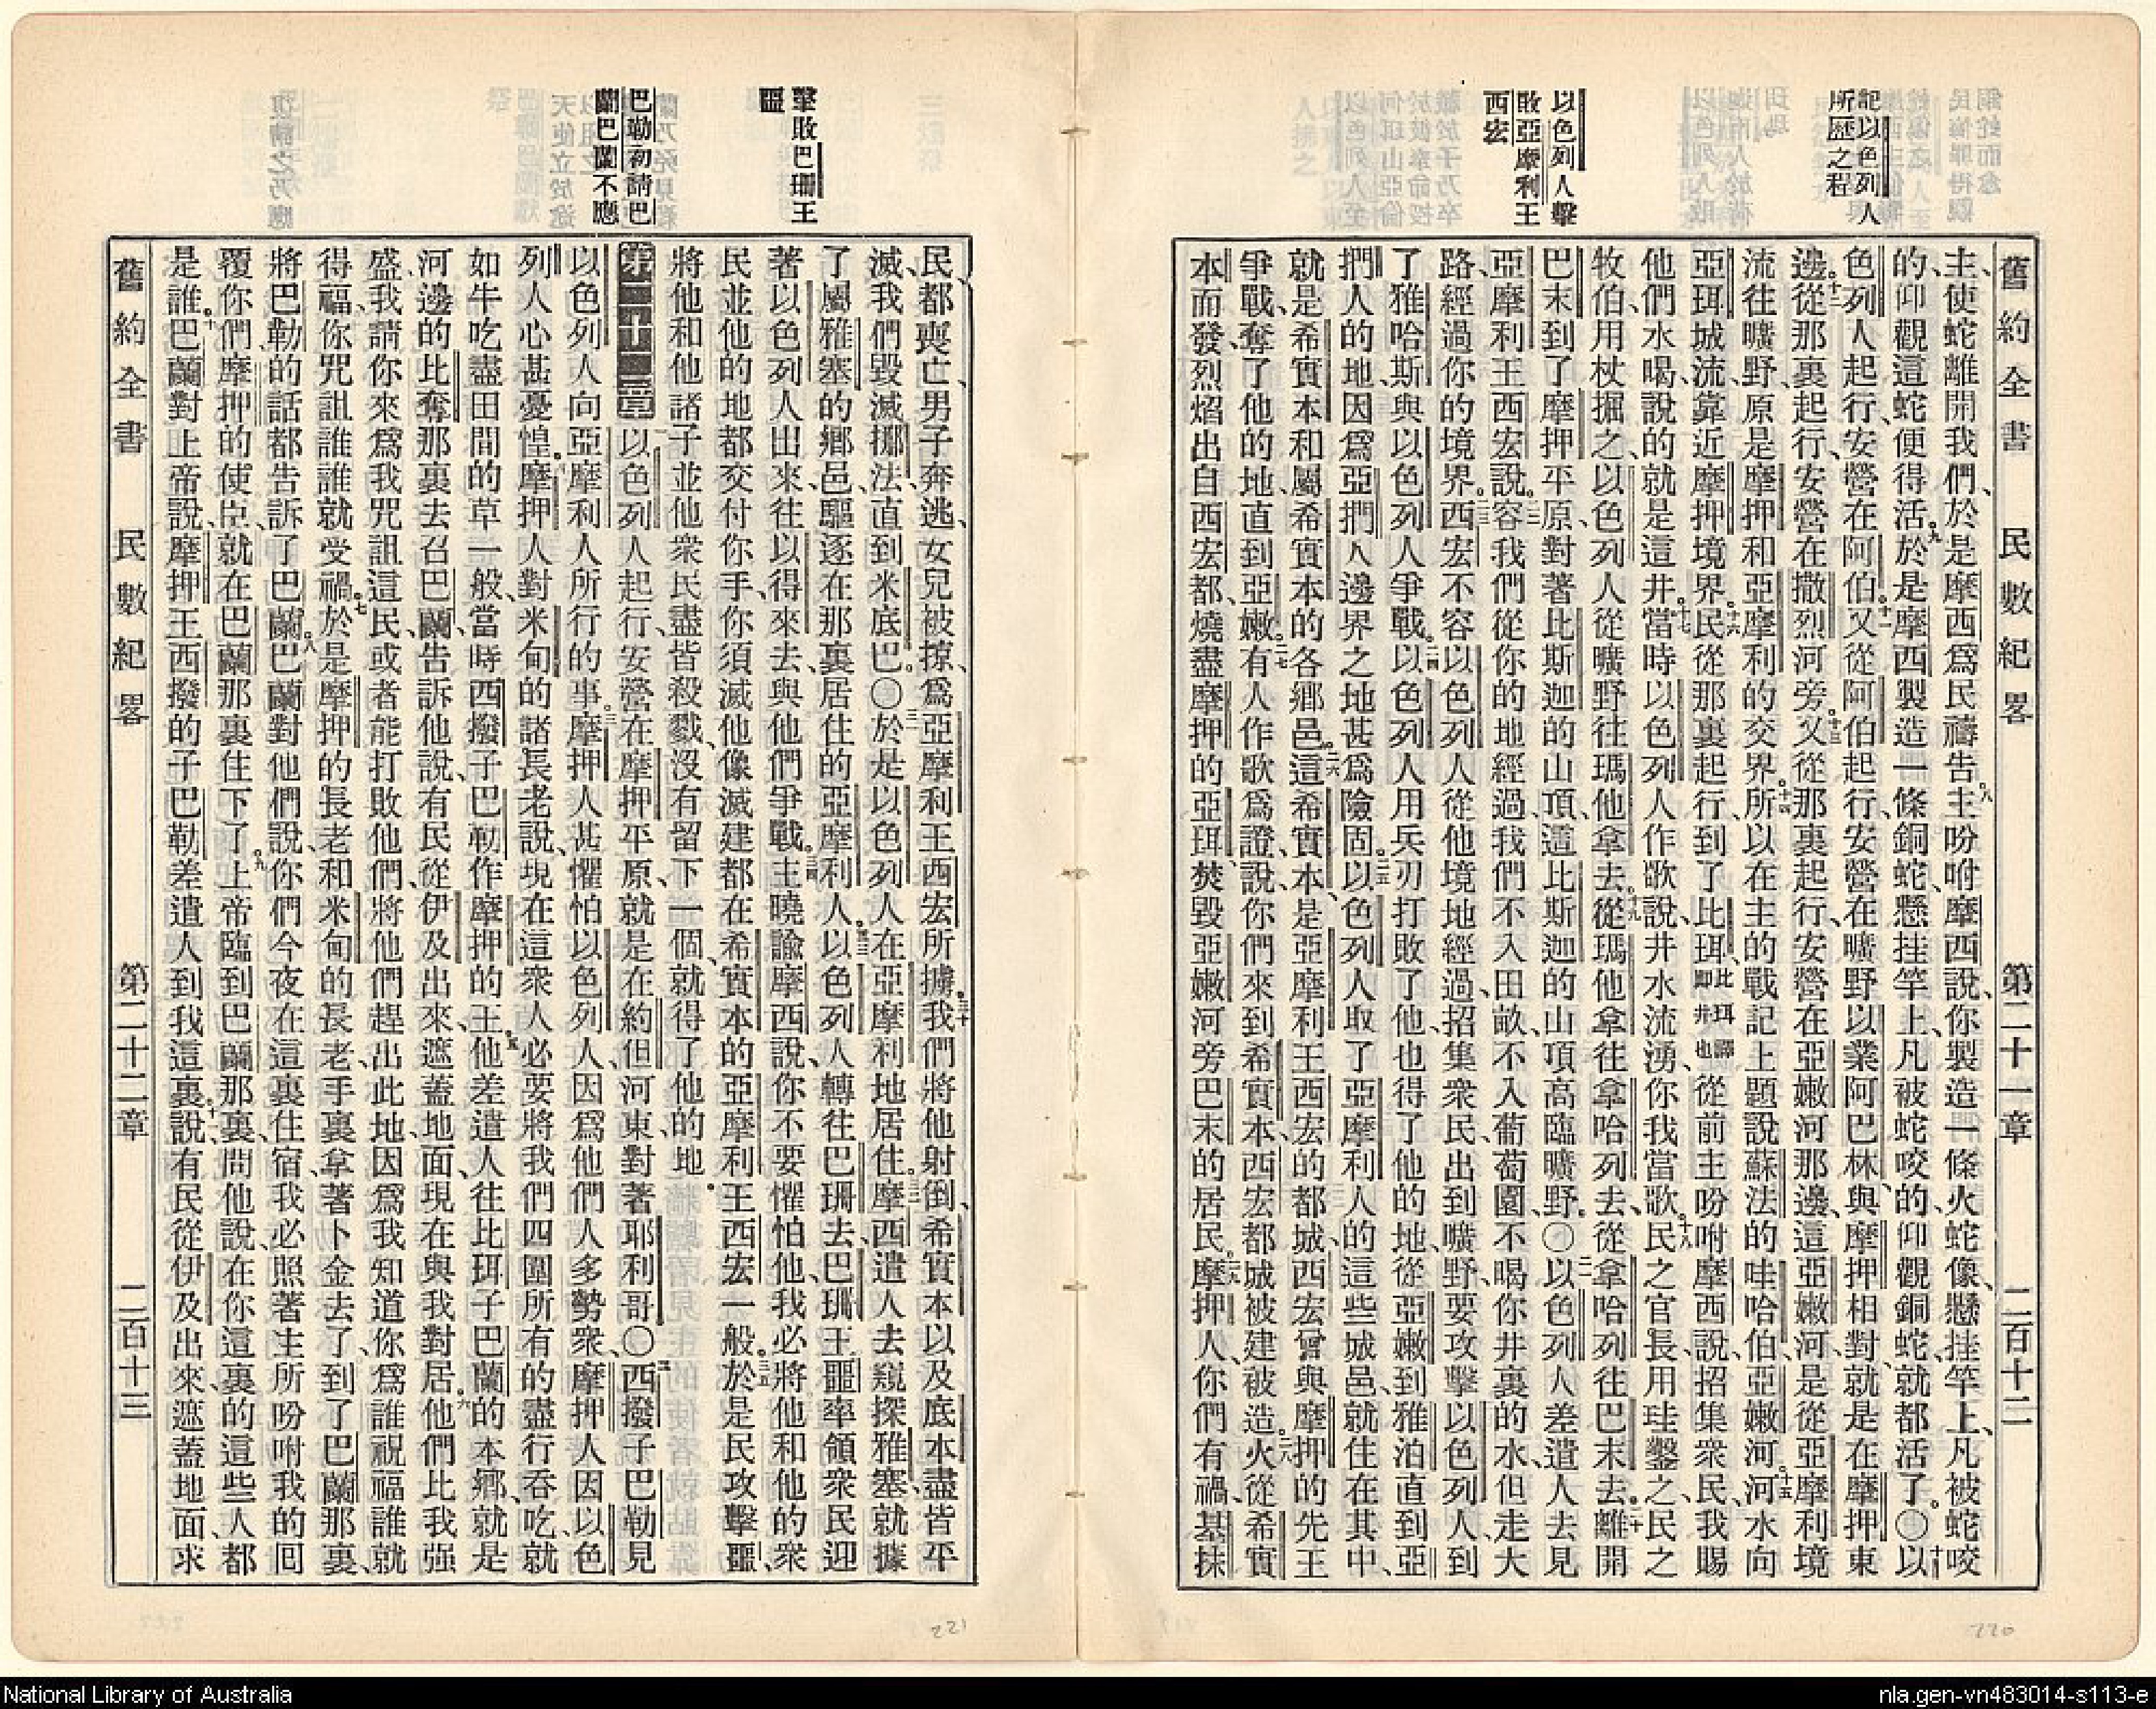 記以色列人
所歷之程
以色列人擊
敗亞摩利王
西宏
舊約全書 民數紀畧 第二十一章 二百十二
主使蛇離開我們、於是摩西爲民禱告主、八吩咐摩西說、你製造一條火蛇像、懸挂竿上、凡被蛇咬
的、仰觀這蛇便得活。九於是摩西製造一條銅蛇、懸挂竿上、凡被蛇咬的、仰觀銅蛇、就都活了。〇十以
色列人起行、安營在阿伯。十一又從阿伯起行、安營在曠野以業阿巴林、與摩押相對、就是在摩押東
邊。十二從那裏起行、安營在撒烈河旁。十三又從那裏起行、安營在亞嫩河那邊、這亞嫩河、是從亞摩利境
流往曠野、原是摩押和亞摩利的交界。十四所以在主的戰記上題說、蘇法的哇哈伯、亞嫩河、十五河水向
亞珥城流、靠近摩押境界。十六民從那裏起行、到了比珥、比珥譯卽井也從前主吩咐摩西說、招集衆民、我賜
他們水喝、說的就是這井。十七當時以色列人作歌說、井水流湧、你我當歌。十八民之官長、用珪鑿之、民之
牧伯、用杖掘之、以色列人從曠野往瑪他拿去。十九從瑪他拿往拿哈列去、從拿哈列往巴末去。二十離開
巴末到了摩押平原、對著比斯迦的山項、這比斯迦的山項高臨曠野。〇二一以色列人差遣人去見
亞摩利王西宏說。二二容我們從你的地經過、我們不入田畝、不入葡萄園、不喝你井裏的水、但走大
路、經過你的境界。二三西宏不容以色列人從他境地經過、招集衆民、出到曠野、要攻擊以色列人、到
了雅哈斯、與以色列人爭戰。二四以色列人用兵刃打敗了他、也得了他的地、從亞嫩到雅泊、直到亞
捫人的地、因爲亞捫人邊界之地甚爲險固。二五以色列人取了亞摩利人的這些城邑、就住在其中、
就是希實本和屬希實本的各鄉邑。二六這希實本、是亞摩利王西宏的都城、西宏曾與摩押的先王
爭戰、奪了他的地、直到亞嫩。二七有人作歌爲證、說、你們來到希實本、西宏都城被建被造。二八火從希實
本而發、烈焰出自西宏都、燒盡摩押的亞珥、焚毀亞嫩河旁巴末的居民。二九摩押人、你們有禍、基抹
擊敗巴珊王
噩
巴勒初請巴
蘭巴蘭不應
民都喪亡、男子奔逃、女兒被掠、爲亞摩利王西宏所擄。三十我們將他射倒、希實本以及底本盡皆平
滅、我們毀滅挪法、直到米底巴。〇三一於是以色列人在亞摩利地居住。三二摩西遣人去窺探雅塞、就據
了屬雅塞的鄉邑、驅逐在那裏居住的亞摩利人。三三以色列人轉往巴珊去、巴珊王噩率領衆民迎
著以色列人出來、往以得來去、與他們爭戰。三四主曉諭摩西說、你不要懼怕他、我必將他和他的衆
民並他的地、都交付你手、你須滅他、像滅建都在希實本的亞摩利王西宏一般。三五於是民攻擊噩、
將他和他諸子並他衆民盡皆殺戮、沒有留下一個、就得了他的地。
第二十二章 以色列人起行、安營在摩押平原、就是在約但河東、對著耶利哥。〇二西撥子巴勒見
以色列人向亞摩利人所行的事。三摩押人甚懼怕以色列人、因爲他們人多勢衆、摩押人因以色
列人心甚憂惶。四摩押人對米甸的諸長老說、現在這衆人必要將我們四圍所有的盡行吞吃、就
如牛吃盡田間的草一般、當時西撥子巴勒作摩押的王。五他差遣人往比珥子巴蘭的本鄉、就是
河邊的比奪那裏去召巴蘭、告訴他說、有民從伊及出來、遮蓋地面、現在與我對居。六他們比我强
盛、我請你來爲我咒詛這民、或者能打敗他們、將他們趕出此地、因爲我知道你爲誰祝福誰就
得福、你咒詛誰誰就受禍。七於是摩押的長老和米甸的長老、手裏拿著卜金去了、到了巴蘭那裏、
將巴勒的話都告訴了巴蘭。八巴蘭對他們說、你們今夜在這裏住宿、我必照著主所吩咐我的囘
覆你們、摩押的使臣、就在巴蘭那裏住下了。九上帝臨到巴蘭那裏、問他說、在你這裏的這些人都
是誰。十巴蘭對上帝說、摩押王西撥的子巴勒差遣人到我這裏、十一說、有民從伊及出來、遮蓋地面、求
舊約全書 民數紀畧 第二十二章 二百十三
221
220
National Library of Australia
nla.gen-vn483014-s113-e